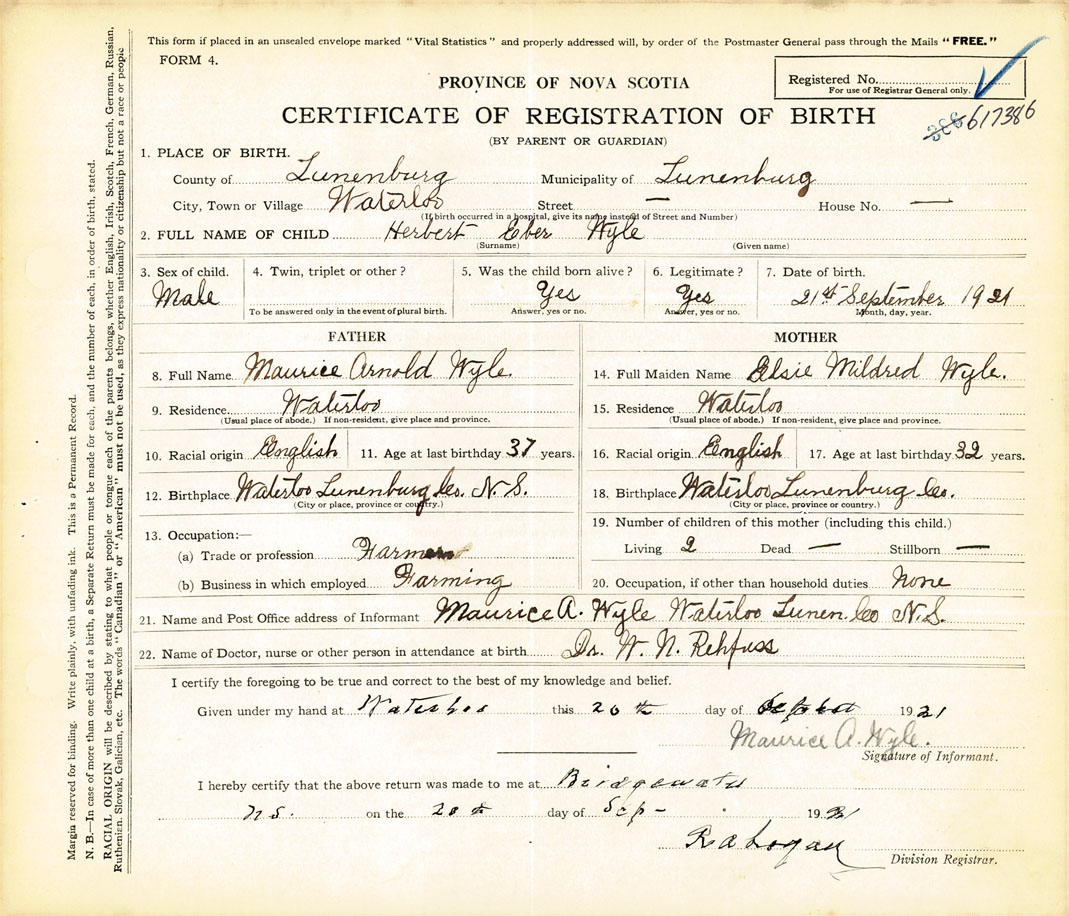 This form if placed in an unsealed envelope marked "Vital Statistics" and properly addressed will, by order of the Postmaster General pass through the Mails "FREE."
FORM 4.
Registered No.
For use of Registrar General only.
617386
PROVINCE OF NOVA SCOTIA
CERTIFICATE OF REGISTRATION OF BIRTH
(BY PARENT OR GUARDIAN)
1. PLACE OF BIRTH.
County of Lunenburg Municipality of Lunenburg
City, Town or Village Waterloo Street — House No. —
(If birth occurred in a hospital, give its name instead of Street and Number)
2. FULL NAME OF CHILD Herbert Eber Wyle
(Surname) (Given name)
3. Sex of child. 4. Twin, triplet or other? 5. Was the child born alive? 6. Legitimate? 7. Date of birth.
Male Yes Yes 21st September 1921
To be answered only in the event of plural birth. Answer, yes or no. Answer, yes or no. Month, day, year.
FATHER
8. Full Name Maurice Arnold Wyle.
9. Residence Waterloo
(Usual place of abode.) If non-resident, give place and province.
10. Racial origin English 11. Age at last birthday 37 years.
12. Birthplace Waterloo Lunenburg Co. N.S.
(City or place, province or country.)
13. Occupation:—
(a) Trade or profession Farmer
(b) Business in which employed Farming
MOTHER
14. Full Maiden Name Elsie Mildred Wyle.
15. Residence Waterloo
(Usual place of abode.) If non-resident, give place and province.
16. Racial origin English 17. Age at last birthday 32 years.
18. Birthplace Waterloo Lunenburg Co.
(City or place, province or country.)
19. Number of children of this mother (including this child.)
Living 2 Dead — Stillborn —
20. Occupation, if other than household duties None
21. Name and Post Office address of Informant Maurice A. Wyle Waterloo Lunen. Co N.S.
22. Name of Doctor, nurse or other person in attendance at birth Dr. W. N. Rehfuss
I certify the foregoing to be true and correct to the best of my knowledge and belief.
Given under my hand at Waterloo this 26th day of 1921
Maurice A. Wyle.
Signature of Informant.
I hereby certify that the above return was made to me at Bridgewater
N.S. on the 28th day of Sep- 1921
R A Logan
Division Registrar.
Margin reserved for binding. Write plainly, with unfading ink. This is a Permanent Record.
N. B.—In case of more than one child at a birth, a Separate Return must be made for each, and the number of each, in order of birth, stated.
RACIAL ORIGIN will be described by stating to what people or tongue each of the parents belongs, whether English, Irish, Scotch, French, German, Russian,
Ruthenian, Slovak, Galician, etc. The words "Canadian" or "American" must not be used, as they express nationality or citizenship but not a race or people